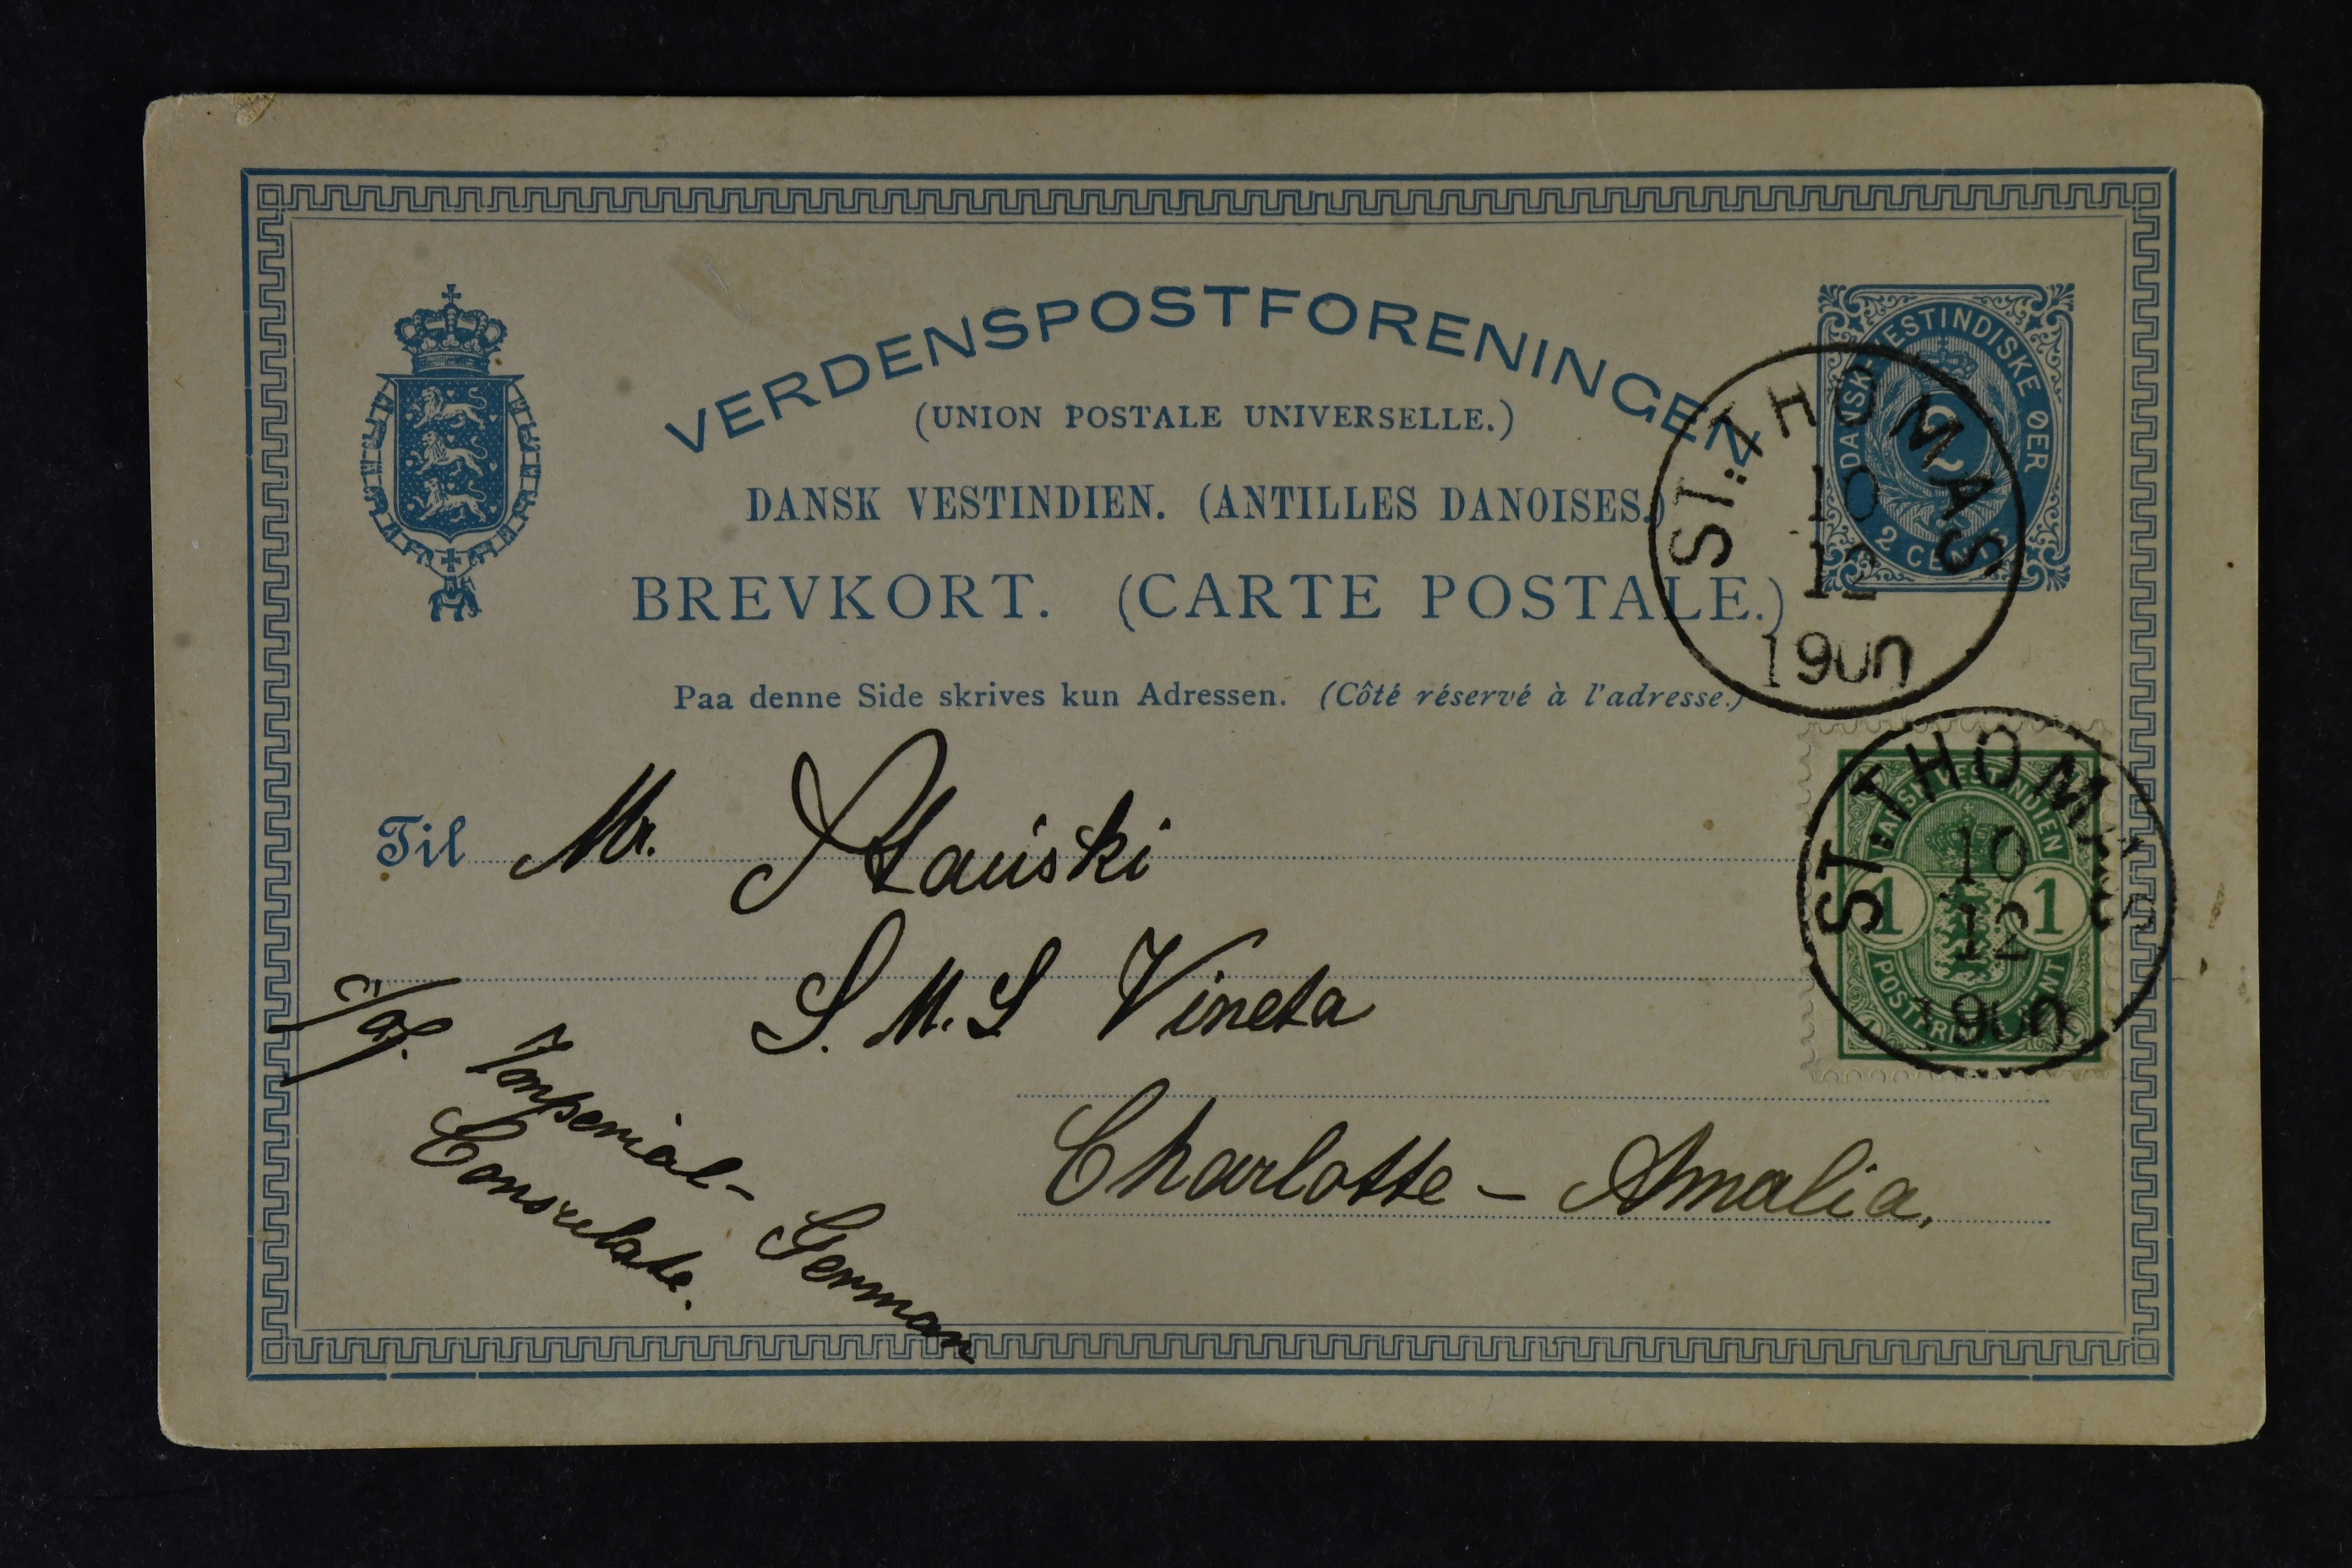 VERDENSPOSTFORENINGEN
(UNION POSTALE UNIVERSELLE.)
DANSK VESTINDIEN. (ANTILLES DANOISES.)
BREVKORT. (CARTE POSTALE.)
Paa denne Side skrives kun Adressen. (Côté réservé à l'adresse.)
DANSK VESTINDISKE ØER
2
2 CENTS
ST: THOMAS
10
12
1900
Til Mr.
S. M. S Vineta
Charlotte - Amalia.
Imperial- German
Consulate.
DANSK VESTINDIEN
1 1
POSTFRIM. CENT
ST: THOMAS
10
12
1900